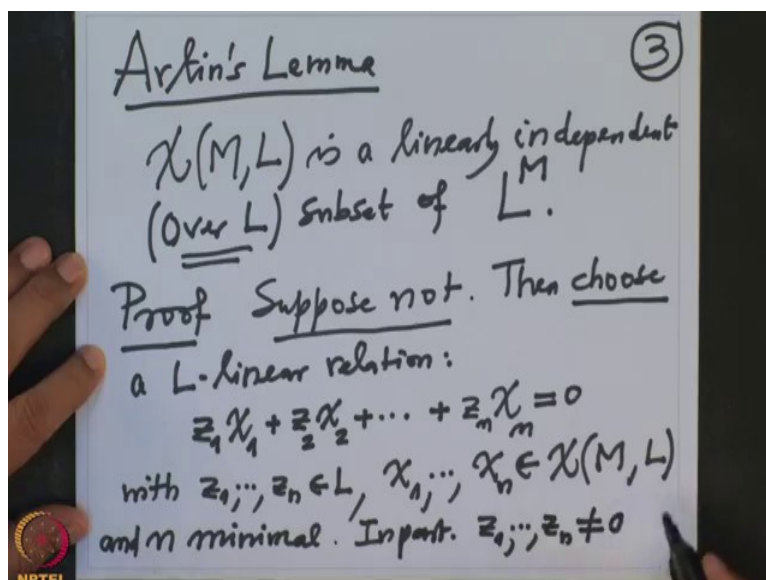 Artin's Lemma
③
χ(M, L) is a linearly independent
(Over L) subset of L^M.
Proof Suppose not. Then choose
a L-linear relation:
z₁χ₁ + z₂χ₂ + ··· + zₙχₙ = 0
with z₁,···, zₙ ∈ L, χ₁,···, χₙ ∈ χ(M, L)
and n minimal. In part. z₁,···, zₙ ≠ 0
NPTEL